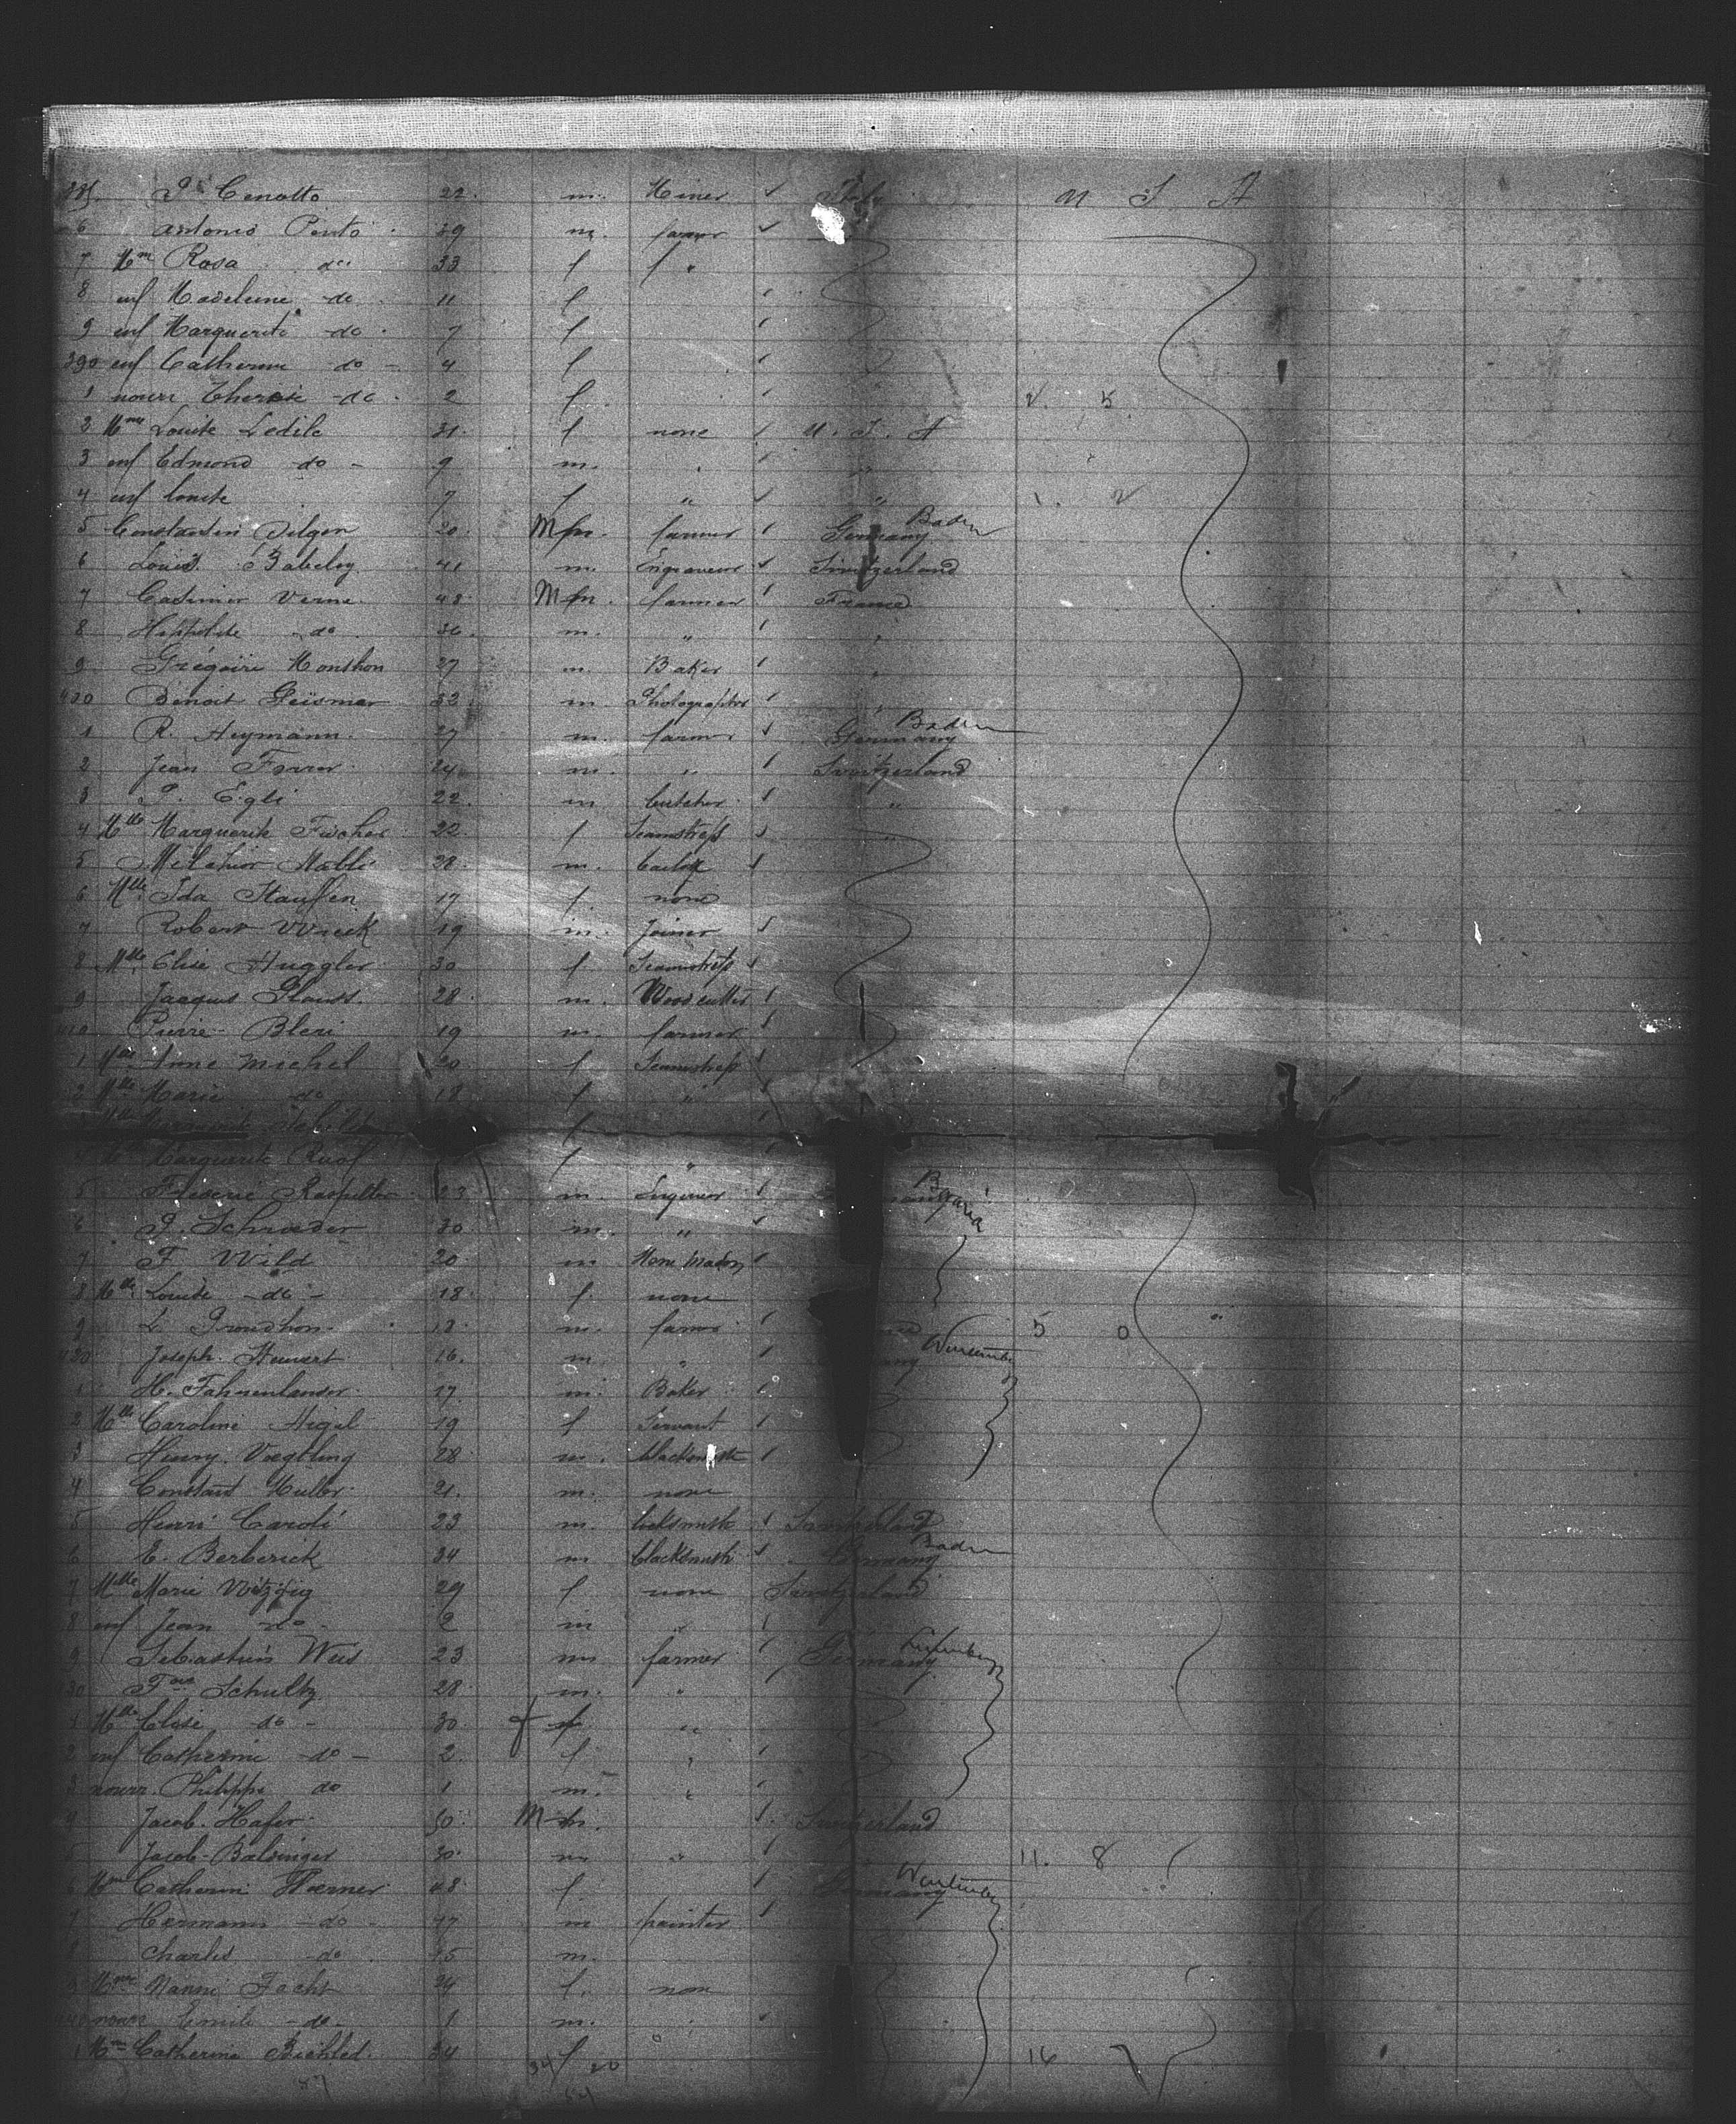 385. P. Cenotto 22. m. Miner ✓ Italy U S A
6 Antonio Pinto 39 m. farmer ✓
7 Mme Rosa do 33 f "
8 enf Madeleine do 11 f
9 enf Marguerite do 7 f
390 enf Catherine do 4 f
1 nourr Therese do 2 f 2. 5
2 Mme Louise Ledile 31. f none U. S. A
3 enf Edmond do 9 m. "
4 enf Louise 7 f " " 1. 2
5 Constantin Dilger 20. M m. farmer Germany Baden
6 Louis Babeley 41 m. Engraveur ✓ Switzerland
7 Casimir Verne 48 M m. farmer France
8 Hippolite do 36. m. " "
9 Grégoire Monthon 27 m. Baker "
400 Benoit Geismar 32 m. Photographer "
1 R. Heymann 27 m. farmer Germany Baden
2 Jean Forrer 24 m. " Switzerland
3 P. Egli 22. m butcher "
4 Mlle Marguerite Fischer 22. f Seamstress "
5 Melchior 28. m.
6 Mlle Ida Stauffen 17 f. none
7 Robert Wreck 19 m. Joiner
8 Mlle Elise Huggler 30 f. Seamstress
9 Jacques 28. m. Woodcutter
410 Pierre Bleri 19 m. farmer
1 Mlle Anne Michel 20 f Seamstress
2 Mlle Marie do 18 f "
Marguerite f
Marguerite Ruof f "
5 Frederic 23 m. Engineer Bavaria
6 P. Schroeder 30 m. "
7 F. Wild 20 m
8 Mlle Louise do 18 f. none
9 L. Proudhon 18. m. farmer 5 0
420 Joseph 16. m " Wurtemb
1 H. Fahrenlander 17 m. Baker
2 Mlle Caroline Higel 19 f Servant
3 Henry Voegtling 28 m. blacksmith
4 Constant Muller 21. m. none
5 Henri Caroli 23 m. locksmith Switzerland
6 E. Berberick 34 m blacksmith Germany Baden
7 Mlle Marie Witzig 29 f none Switzerland
8 enf Jean do 2 m "
9 Sebastien Weis 23 m farmer Germany
30 Schultz 28. m. "
1 Elise do 30 f "
2 enf Catherine do 2. f "
3 nourr. Philippe do 1 m. "
4 Jacob Hafer 50 M m. Switzerland
5 Jacob Balsinger 30. m " 11. 8
6 Mme Catherine Werner 48 f. Germany Wurtemb
7 Hermann do 47 m painter
8 Charles do 15 m.
9 Mme Nanni Fecht 24 f. non
440 nourr Emile do 1 m.
1 Mme Catherine 34 f 16
34 20
54